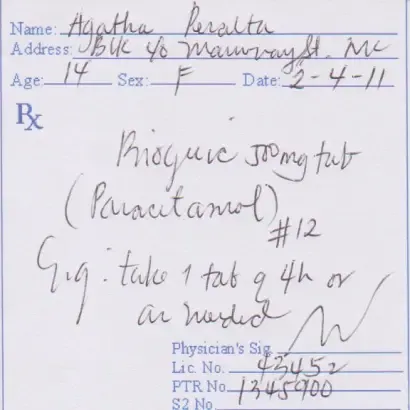 Name: Agatha Peralta
Address: Blk 40 St. MC
Age: 14 Sex: F Date: 2-4-11
Rx
500mg tab
(Paracetamol)
#12
Sig: take 1 tab q 4h or
as needed
Physician's Sig.
Lic. No. 43452
PTR No. 1345900
S2 No.